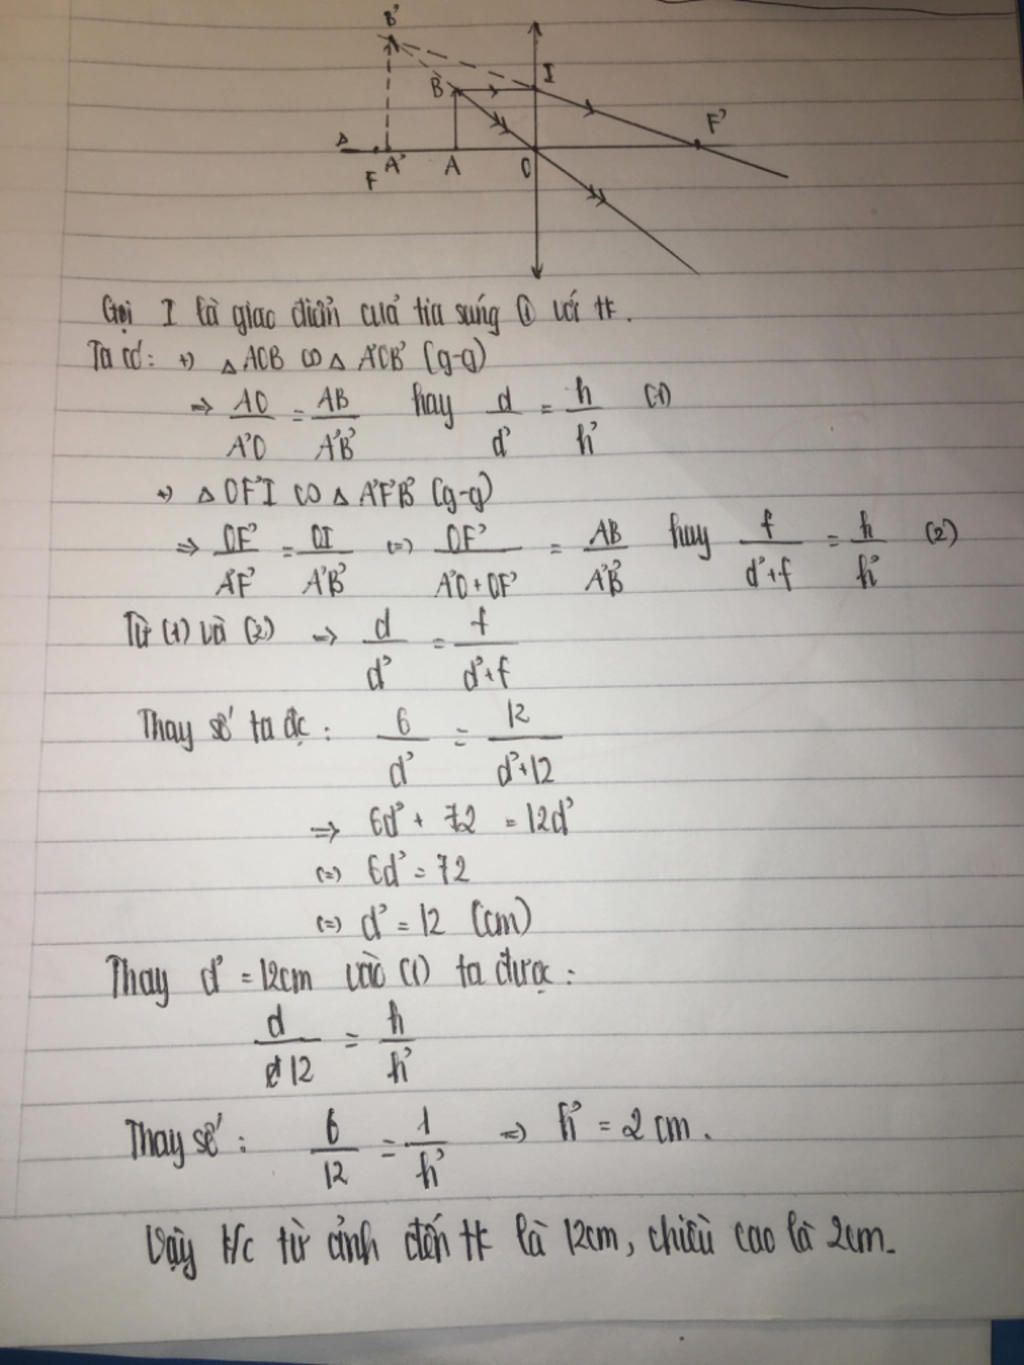 B'
B I
F'
Δ F A' A O
Gọi I là giao điểm của tia sáng ① với tk.
Ta có: +) △ AOB ∽ △ A'OB' (g-g)
=> AO/A'O = AB/A'B' hay d/d' = h/h' (1)
+) △ OF'I ∽ △ A'F'B' (g-g)
=> OF'/A'F' = OI/A'B' (=) OF'/A'O + OF' = AB/A'B' hay f/d'+f = h/h' (2)
Từ (1) và (2) => d/d' = f/d'+f
Thay số ta đc: 6/d' = 12/d'+12
=> 6d' + 72 = 12d'
(=) 6d' = 72
(=) d' = 12 (cm)
Thay d' = 12cm vào (1) ta được:
d/12 = h/h'
Thay số: 6/12 = 1/h' => h' = 2cm.
Vậy k/c từ ảnh đến tk là 12cm, chiều cao là 2cm.